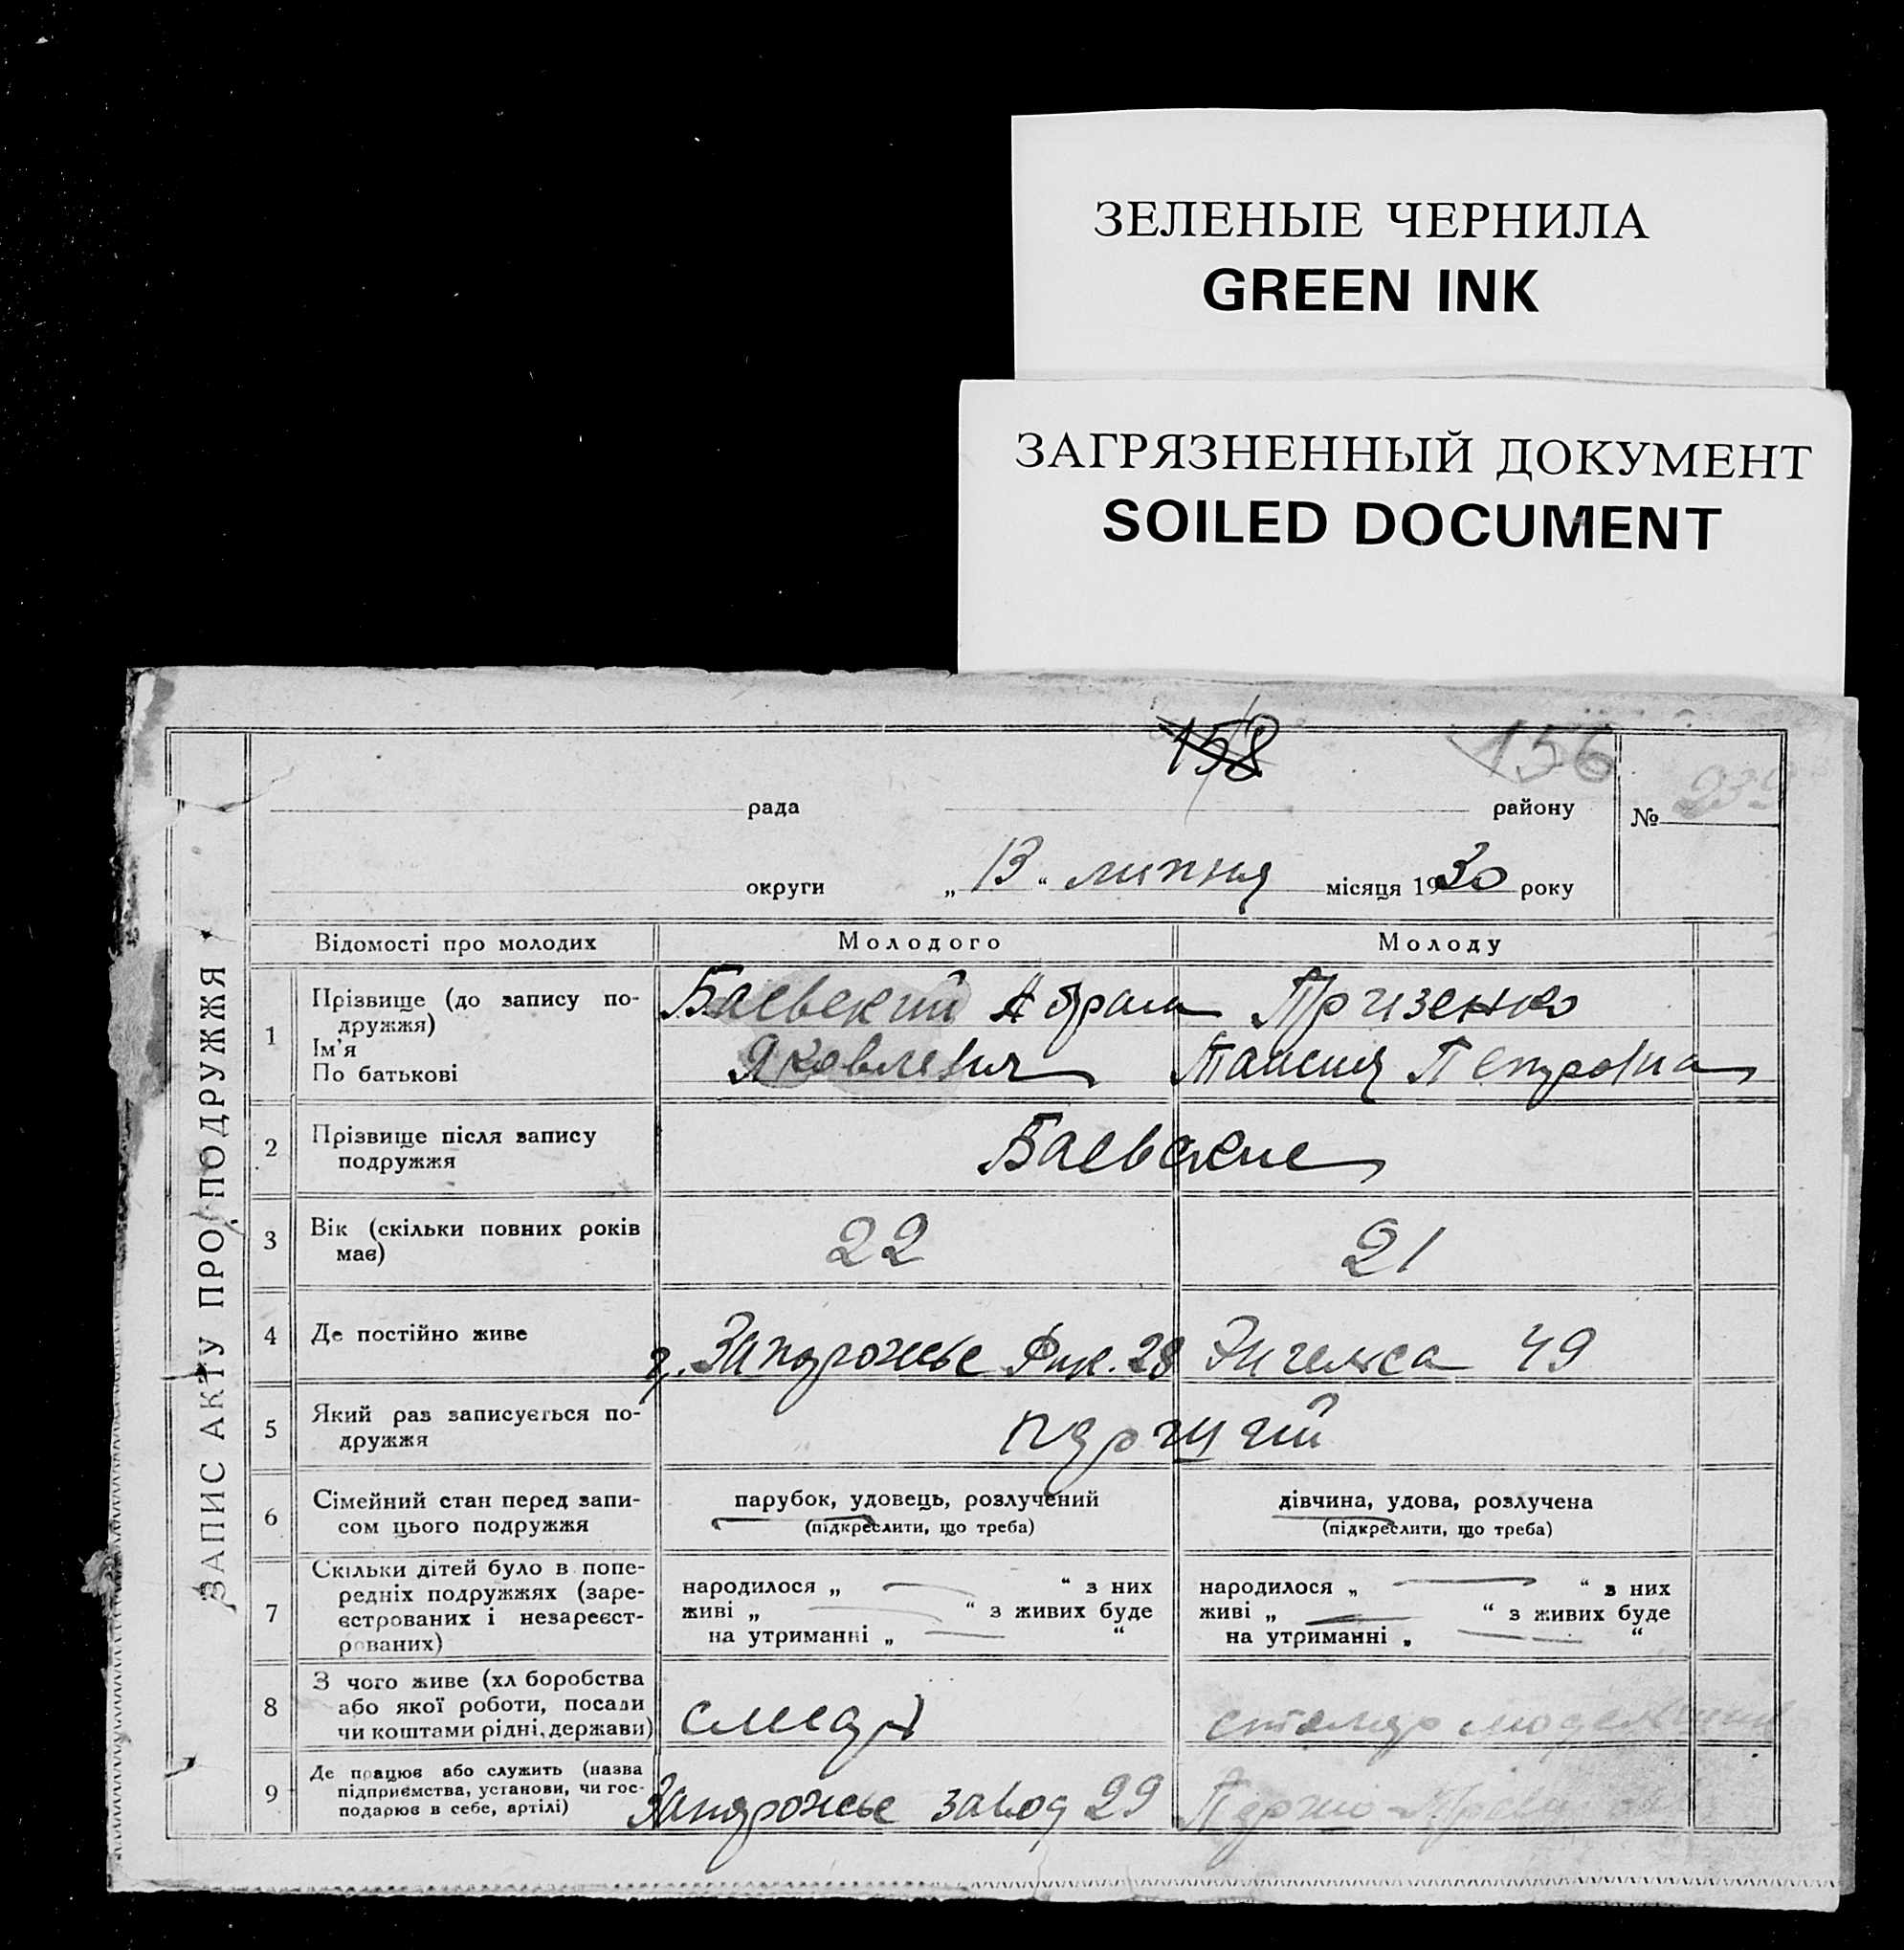 ЗЕЛЕНЫЕ ЧЕРНИЛА
GREEN INK
ЗАГРЯЗНЕННЫЙ ДОКУМЕНТ
SOILED DOCUMENT
ЗАПИС АКТУ ПРО ПОДРУЖЖЯ
158 156
рада району №
округи „13“ липня місяця 1930 року
Відомості про молодих Молодого Молоду
1 Прізвище (до запису подружжя) Баевский Абрам
Ім'я
По батькові Яковлевич Таисия Петровна
2 Прізвище після запису подружжя Баевские
3 Вік (скільки повних років має) 22 21
4 Де постійно живе г. Запорожье 28 Энгельса 49
5 Який раз записується подружжя перший
6 Сімейний стан перед записом цього подружжя парубок, удовець, розлучений (підкреслити, що треба) дівчина, удова, розлучена (підкреслити, що треба)
7 Скільки дітей було в попередніх подружжях (зареєстрованих і незареєстрованих) народилося „ — “ з них живі „ — “ з живих буде на утриманні „ — “ народилося „ — “ з них живі „ — “ з живих буде на утриманні „ — “
8 З чого живе (хл боробства або якої роботи, посади чи коштами рідні, держави)
9 Де працює або служить (назва підприємства, установи, чи господарює в себе, артілі) Запорожье завод 29